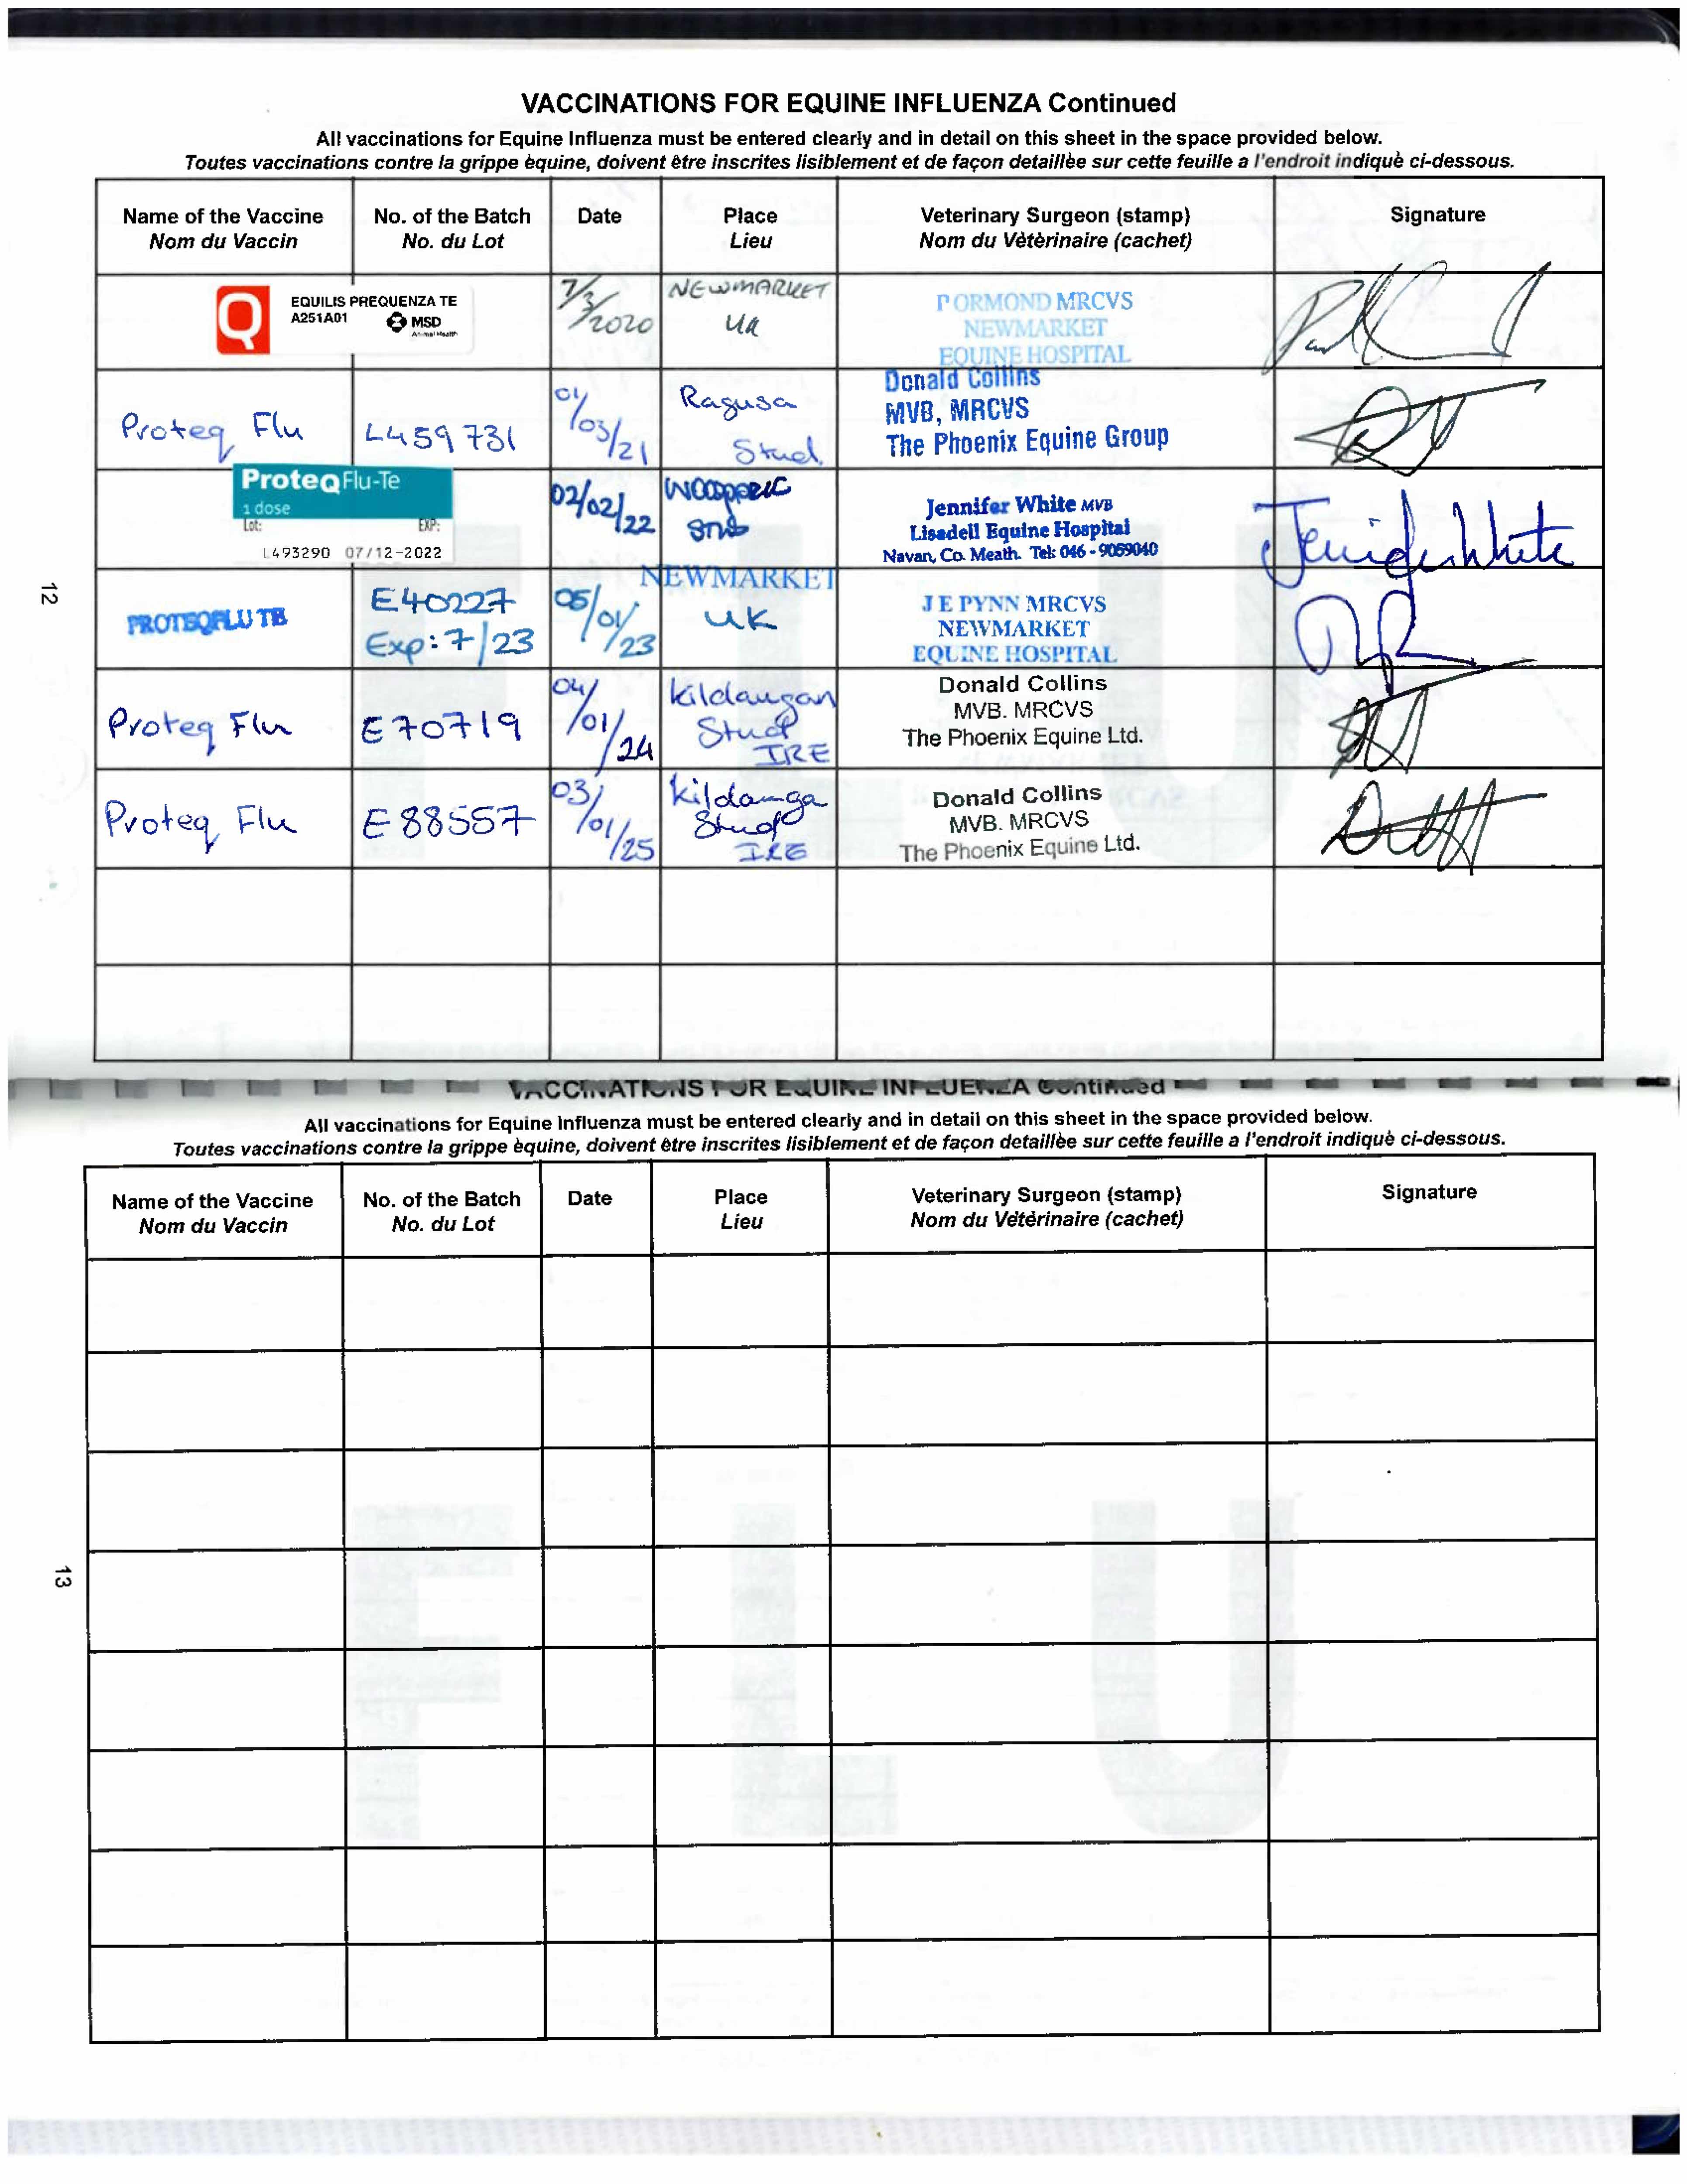 VACCINATIONS FOR EQUINE INFLUENZA Continued
All vaccinations for Equine Influenza must be entered clearly and in detail on this sheet in the space provided below.
Toutes vaccinations contre la grippe èquine, doivent être inscrites lisiblement et de façon detaillèe sur cette feuille a l'endroit indiquè ci-dessous.
Name of the Vaccine
Nom du Vaccin
No. of the Batch
No. du Lot
Date
Place
Lieu
Veterinary Surgeon (stamp)
Nom du Vètèrinaire (cachet)
Signature
Q
EQUILIS PREQUENZA TE
A251A01
MSD
Animal Health
7/3/2020
NEWMARKET
UK
P ORMOND MRCVS
NEWMARKET
EQUINE HOSPITAL
Proteq Flu
L459731
01/03/21
Ragusa
Stud
Donald Collins
MVB, MRCVS
The Phoenix Equine Group
ProteqFlu-Te
1 dose
Lot: EXP:
L493290 07/12-2022
02/02/22
Jennifer White MVB
Lisadell Equine Hospital
Navan, Co. Meath. Tel: 046 - 9059040
Jennifer White
PROTEQFLU TE
E40227
Exp: 7/23
05/01/23
NEWMARKET
UK
J E PYNN MRCVS
NEWMARKET
EQUINE HOSPITAL
Proteq Flu
E70719
04/01/24
Kildangan
Stud
IRE
Donald Collins
MVB. MRCVS
The Phoenix Equine Ltd.
Proteq Flu
E88557
03/01/25
Kildanga
Stud
IRE
Donald Collins
MVB. MRCVS
The Phoenix Equine Ltd.
12
FLU
VACCINATIONS FOR EQUINE INFLUENZA Continued
All vaccinations for Equine Influenza must be entered clearly and in detail on this sheet in the space provided below.
Toutes vaccinations contre la grippe èquine, doivent être inscrites lisiblement et de façon detaillèe sur cette feuille a l'endroit indiquè ci-dessous.
Name of the Vaccine
Nom du Vaccin
No. of the Batch
No. du Lot
Date
Place
Lieu
Veterinary Surgeon (stamp)
Nom du Vètèrinaire (cachet)
Signature
13
FLU